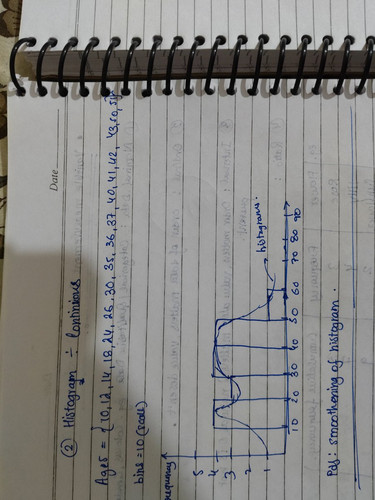 Date
② Histogram ÷ Continious
Ages = { 10, 12, 14, 18, 24, 26, 30, 35, 36, 37, 40, 41, 42, 43, 50, 51}
bins = 10 (
frequency
5
4
3
2
1
histograms.
10 20 30 40 50 60 70 80 90
Pdf: smoothening of histogram.